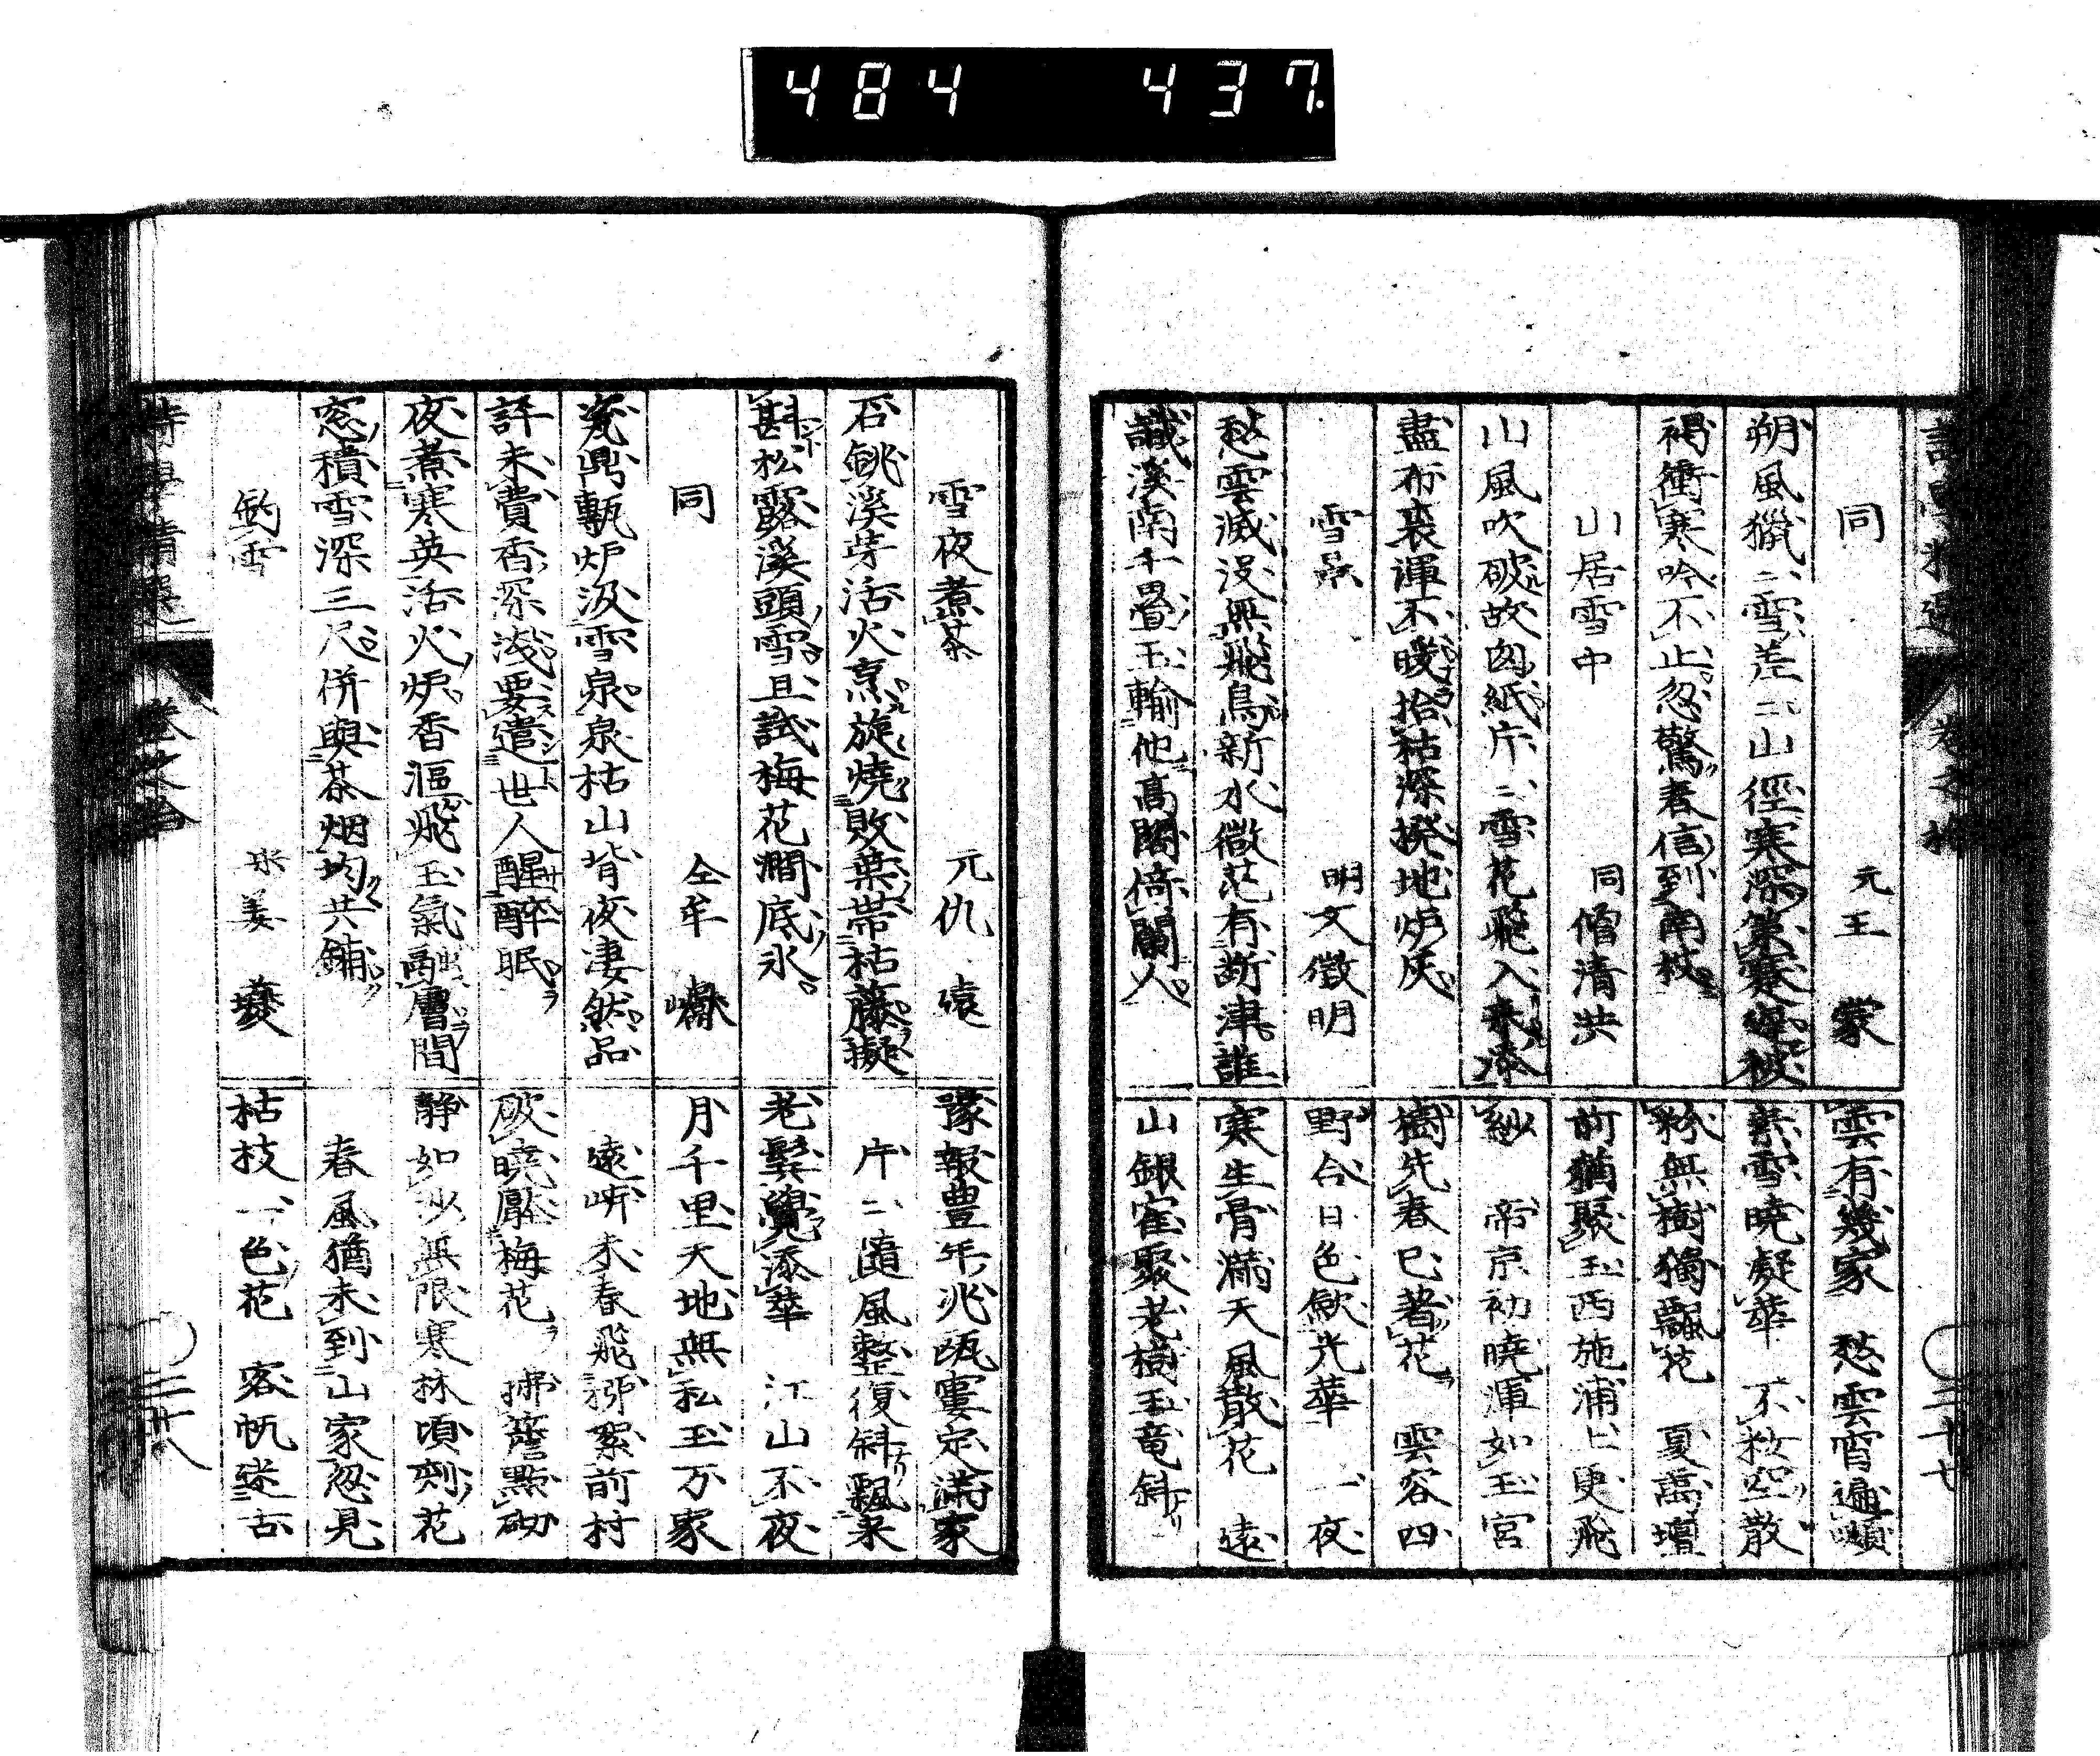 484 437.
同 元王 蒙
朔風獵〻雪差〻山徑寒深策蹇
褐衝寒吟不止忽驚春信到南枝
山居雪中 同僧清洪
山風吹破故囱紙片〻雪花飛入來添
盡布裘渾不暖拾枯深撥地炉灰
雪景 明文徴明
愁雲滅没無飛鳥新水微茫有断津誰
識溪南千畳玉輸他高閣倚闌人
雲有幾家 愁雲宵遍
素雪曉凝華 不粧空散
粉無樹獨飄花 夏萬壇
前猶聚玉西施浦上更飛
紗 帝京初曉渾如玉宮
樹先春已著花 雲容四
野合日色歛光華 一夜
寒生骨満天風散花 遠
山銀窟聚老樹玉竜斜
卷之拾
二十七
雪夜煮茶 元仇 遠
石銚溪芽活火烹旋燒敗葉帯枯藤擬
斟松露溪頭雪且試梅花澗底氷
同 仝牟 巘
瓷鼎甎炉汲雪泉泉枯山背夜凄然品
評未費香深浅要遣世人醒酔眠
夜煮寒英活火炉香漚飛玉氣融層間
窓積雪深三尺併與茶烟均共鋪
釣雪 宋姜 夔
豫報豊年兆甌窶定満家
片〻随風整復斜飄来
老鬂覺添華 江山不夜
月千里天地無私玉万家
遠岍未春飛柳絮前村
破曉壓梅花 拂簷點砌
静如沙無限寒林頃刻花
春風猶未到山家忽見
枯枝一色花 客帆迷古
詩學精選 卷之拾
二十八